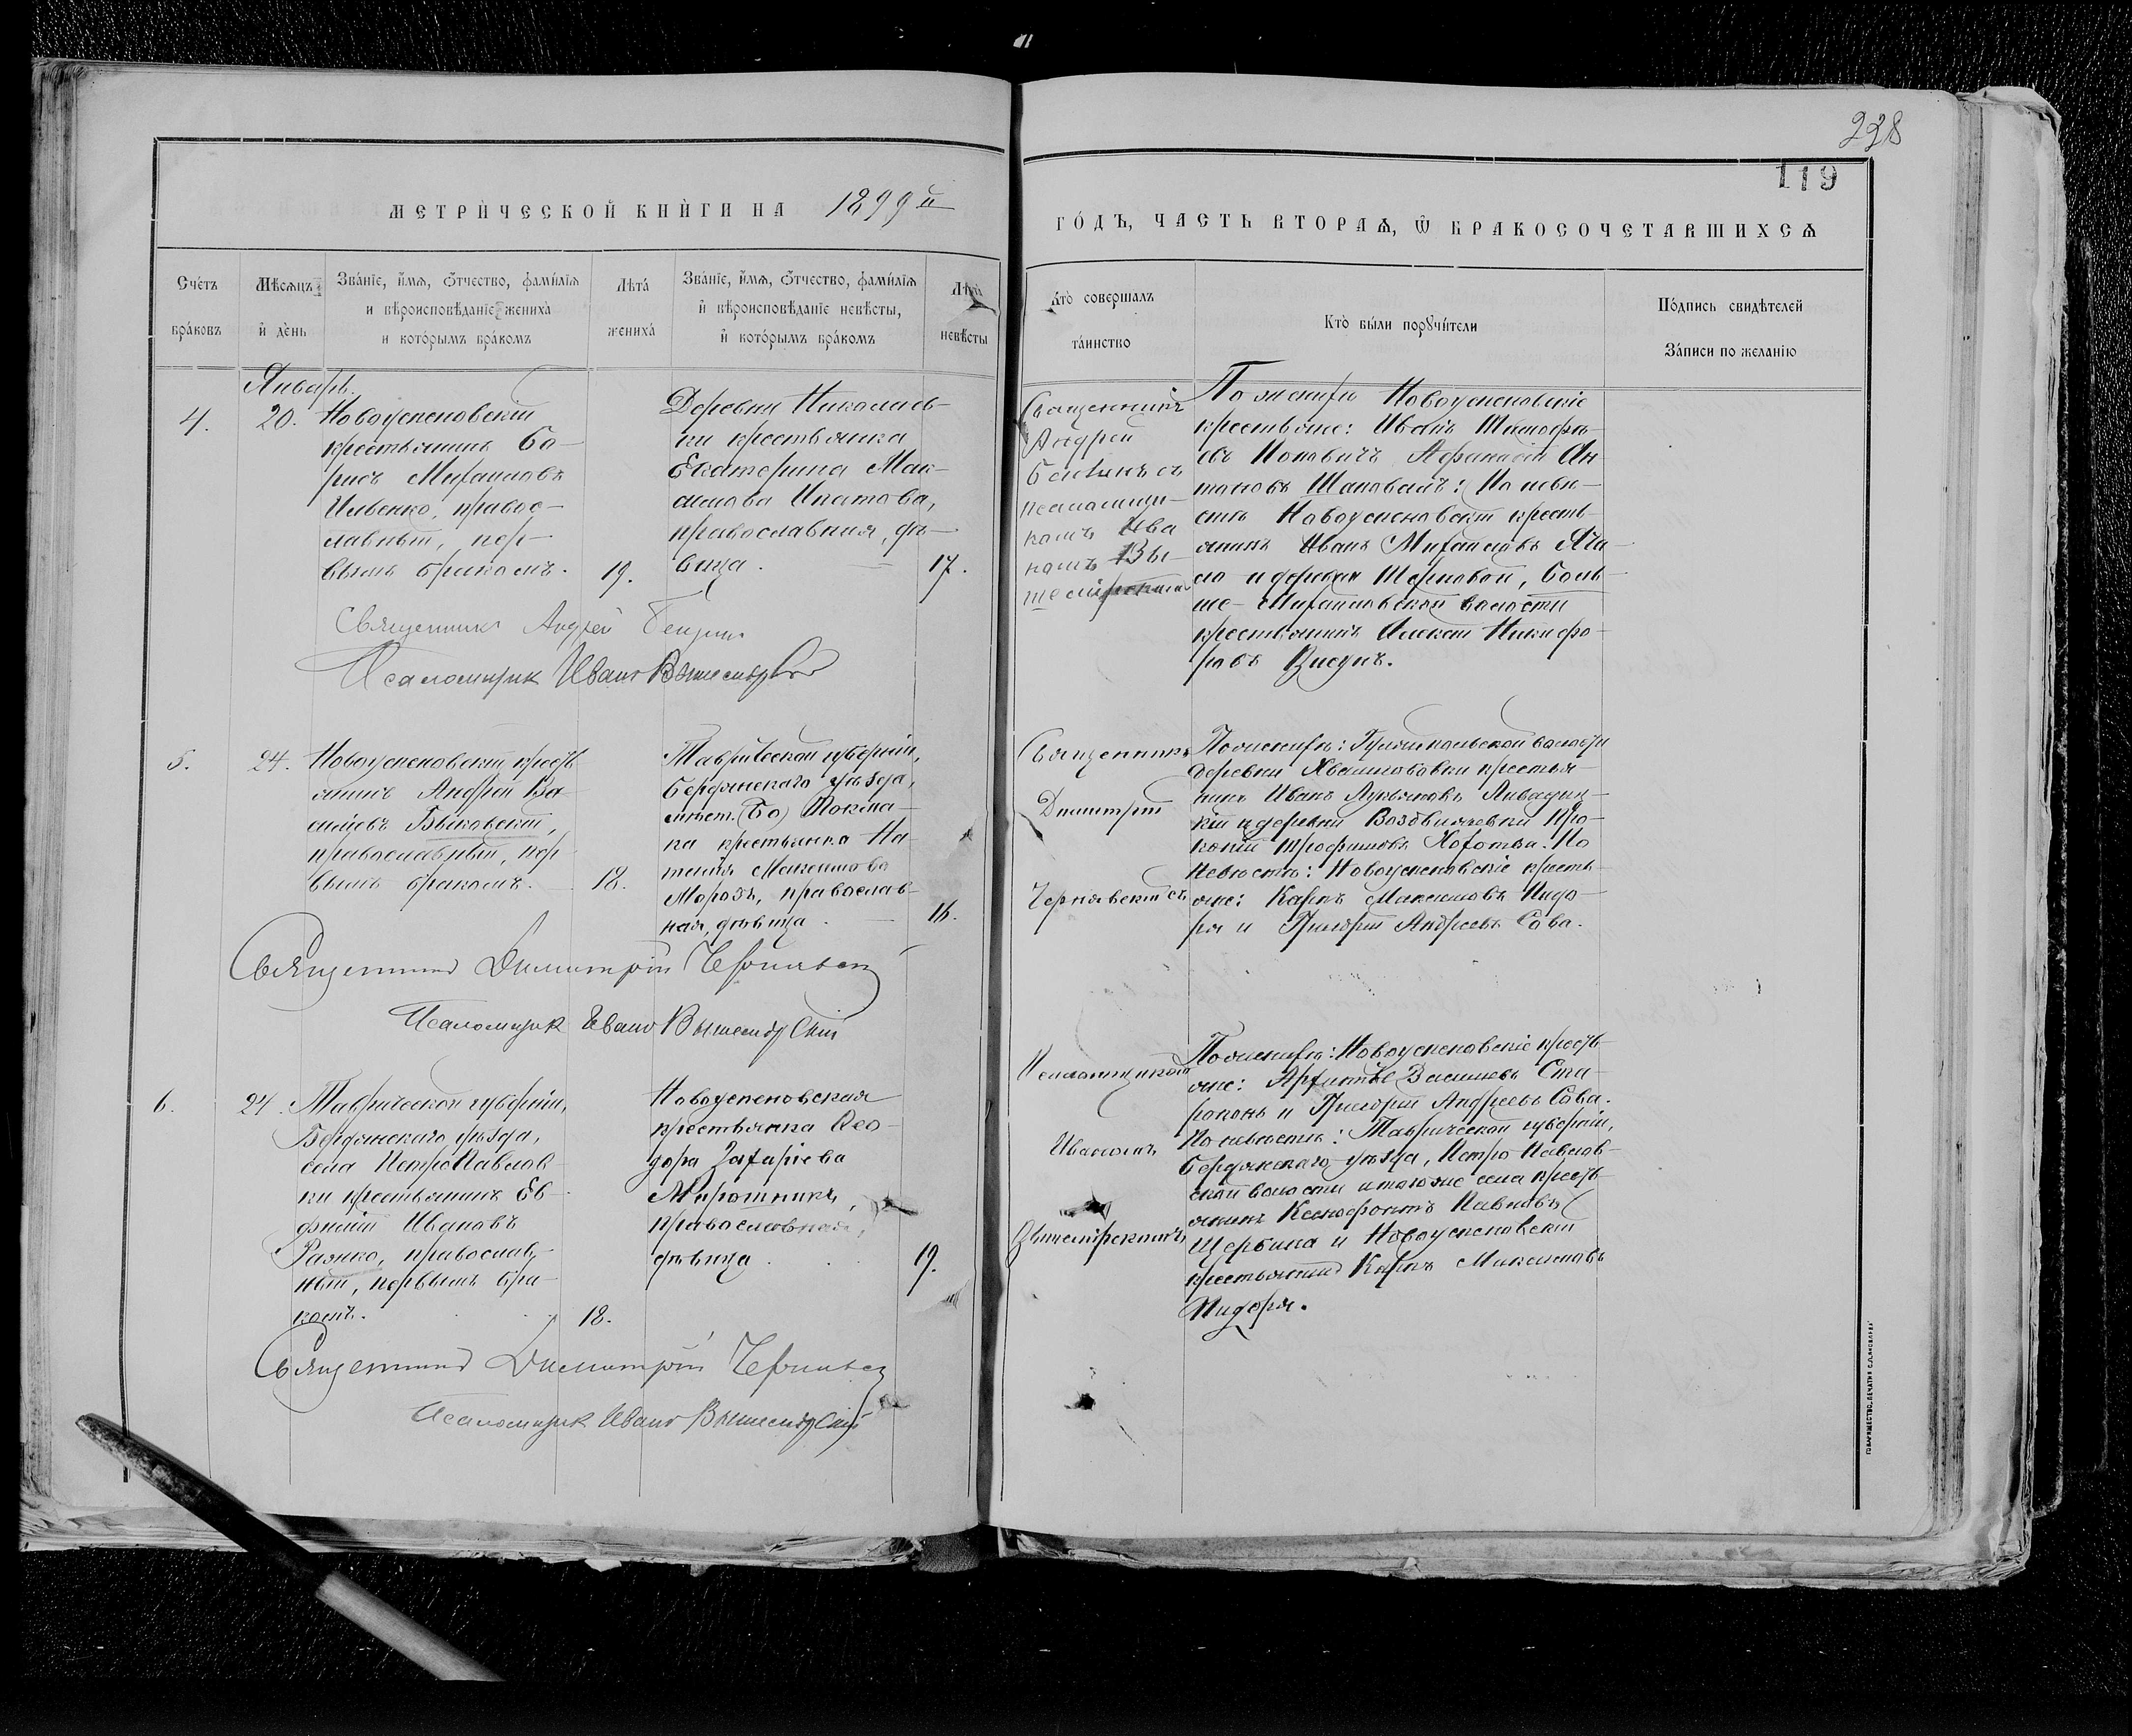 238
119
МЕТРИ́ЧЕСКОЙ КНИ́ГИ НА 1899й
ГО́ДЪ, ЧАСТЬ ВТОРАѦ, Ѡ БРАКОСОЧЕТАВШИХСѦ
Сче́тъ бра́ковъ
Мѣсѧцъ и҆ де́нь
Зва́нїе, и҆́мѧ, ѻ҆́тчество, фами́лїѧ
и вѣроисповѣ́данїе жениха̀
и кото́рымъ бра́комъ
Лѣта́ жениха́
Зва́нїе, и҆́мѧ, ѻ҆́тчество, фами́лїѧ
и҆ вѣроисповѣ́данїе невѣ́сты,
и҆ кото́рымъ бра́комъ
Лѣта̀ невѣ́сты
Кто̀ совершалъ
та́инство
Кто̀ бы́ли порꙋчи́тели
По́дпись свидѣ́телей
За́писи по жела́нїю
Январь.
4.
20.
Новоуспеновскій
крестьянинъ Бо-
рисъ Михаиловъ
Ильенко, правос-
лавный, пер-
вымъ бракомъ.
19.
Деревни Николаев-
ки крестьянка
Екатерина Мак-
симова Ипатова,
православная, дѣ-
вица.
17.
Священникъ
Андрей
съ
псаломщи-
комъ Ива
номъ Вы-
По женихѣ Новоуспеновскіе
крестьяне: Иванъ Тимофѣ-
евъ Поповичъ Афанасій Ан
тоновъ Шаповалъ: По невѣ-
стѣ Новоуспеновскій кресть-
янинъ Иванъ Михаиловъ
и деревни Терновой, Боль-
ше-Михаиловской волости
крестьянинъ Алексѣй Никифо-
ровъ
Священникъ Андрей
Псаломщик Иванъ
5.
24.
Новоуспеновскій кресть
янинъ Андрей Ва-
силіевъ Быковскій,
православный, пер-
вымъ бракомъ.
18.
Таврической губерніи,
Бердянскаго уѣзда,
мѣст. (Бо) Токма-
ка крестьянка На-
талія Максимова
Морозъ, православ-
ная, дѣвица.
16.
Священникъ
Димитрій
Чернявскій съ
По женихѣ: волости
деревни крестья-
нинъ Иванъ Лукьяновъ
кій и деревни Воздвижевки Про-
копій Трофимовъ По
невѣстѣ: Новоуспеновскіе кресть-
яне: Карпъ Максимовъ Пидо-
ря и Григорій Андреевъ Сова.
Священникъ Димитрій
Псаломщик Иванъ
6.
24.
Таврической губерніи,
Бердянскаго уѣзда,
села ПетроПавлов-
ки крестьянинъ Ев-
фимій Ивановъ
православ-
ный, первымъ бра-
комъ.
18.
Новоуспеновская
крестьянка Ѳео-
дора Захаріева
Мирошникъ,
православная,
дѣвица
19.
Псаломщикомъ
Иваномъ
По женихѣ: Новоуспеновскіе кресть-
яне: Василіевъ Ста-
роконь и Григорій Андреевъ Сова.
По невѣстѣ: Таврической губерніи,
Бердянскаго уѣзда, Петро-Павлов-
ской волости и того же села кресть-
янинъ Ксенофонтъ Павловъ
Щербина и Новоуспеновскій
крестьянинъ Карпъ Максимовъ
Пидоря.
Священникъ Димитрій
Псаломщик Иванъ